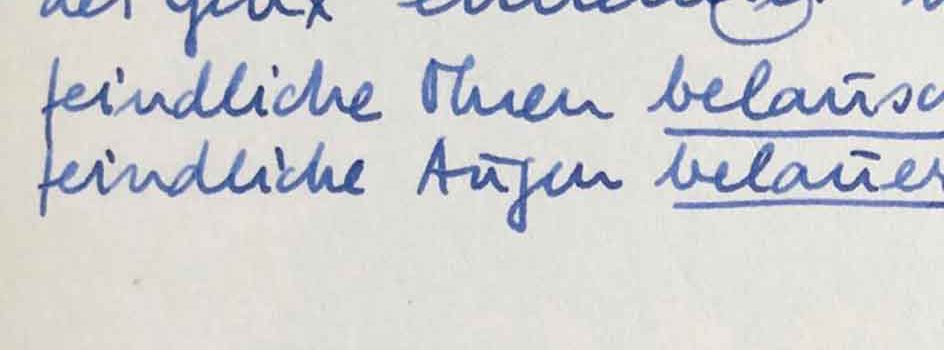 feindliche Ohren belausc
feindliche Augen belauer